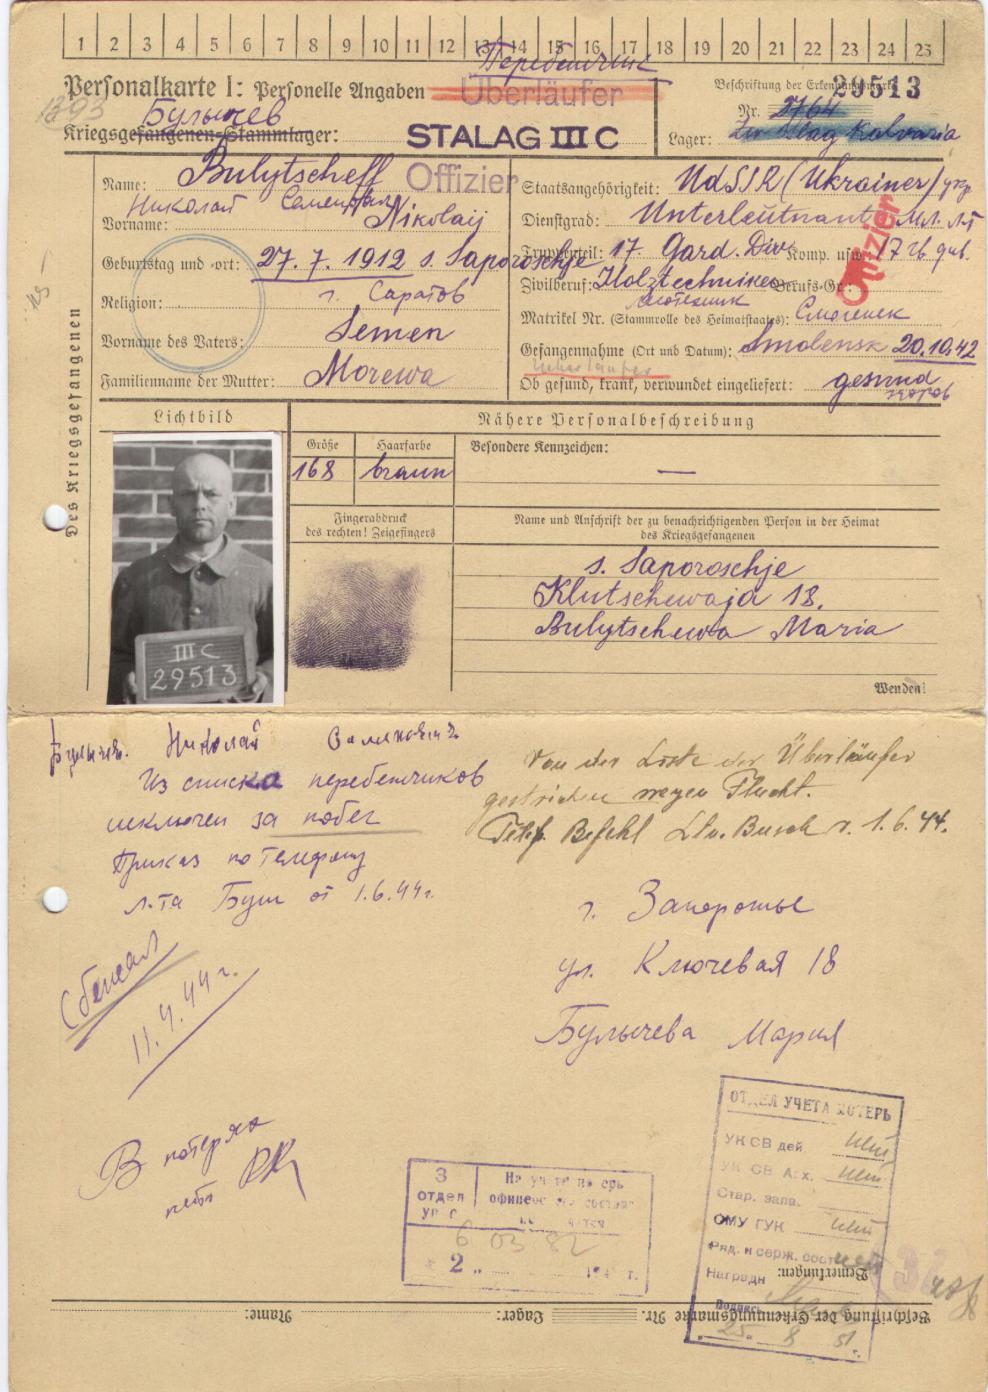 1 2 3 4 5 6 7 8 9 10 11 12 13 14 15 16 17 18 19 20 21 22 23 24 25
Перебежчик
Personalkarte I: Personelle Angaben Überläufer
Beschriftung der Erkennungsmarke 29513
Nr. 2764
Булычев
Kriegsgefangenen-Stammlager: STALAG III C
Lager: Kalvaria
Des Kriegsgefangenen
Name: Bulytscheff Offizier
Николай Семен
Vorname: Nikolaij
Geburtstag und -ort: 27. 7. 1912 s. Saporoschje
г. Саратов
Religion:
Vorname des Vaters: Semen
Familienname der Mutter: Morewa
Staatsangehörigkeit: UdSSR (Ukrainer) укр
Dienstgrad: Unterleutnant мл. л-т
Offizier
Truppenteil: 17 Gard. Div Komp. usw. 17 гв див.
Zivilberuf: Holztechniker Berufs-Gr.:
Matrikel Nr. (Stammrolle des Heimatstaates): Смоленск
Gefangennahme (Ort und Datum): Smolensk 20.10.42
Ueberläufer
Ob gesund, krank, verwundet eingeliefert: gesund
здоров
Lichtbild
Nähere Personalbeschreibung
Größe Haarfarbe Besondere Kennzeichen:
168 braun —
Fingerabdruck
des rechten! Zeigefingers
Name und Anschrift der zu benachrichtigenden Person in der Heimat
des Kriegsgefangenen
s. Saporoschje
Klutschewaja 18.
Bulytschewa Maria
III C
29513
Wenden!
Булычев. Николай Семенович
Из списка перебежчиков
исключен за побег
Приказ по телефону
л-та Буш от 1.6.44г.
Von der Liste der Überläufer
gestrichen wegen Flucht.
Telef. Befehl Ltn. Busch v. 1.6.44.
г. Запорожье
ул. Ключевая 18
Булычева Мария
Сбежал
11.4.44 г.
В потерях
нет
3
отдел
На учете потерь
офицерского состава
не
6 03 82
2
194 г.
ОТДЕЛ УЧЕТА ПОТЕРЬ
УК СВ дей нет
УК СВ Арх. нет
Стар. запа.
ОМУ ГУК нет
Ряд. и серж. сост. нет
Наградн
Подпись
25 8 51
Bemerkungen:
Beschriftung der Erkennungsmarke Nr. Lager: Name: